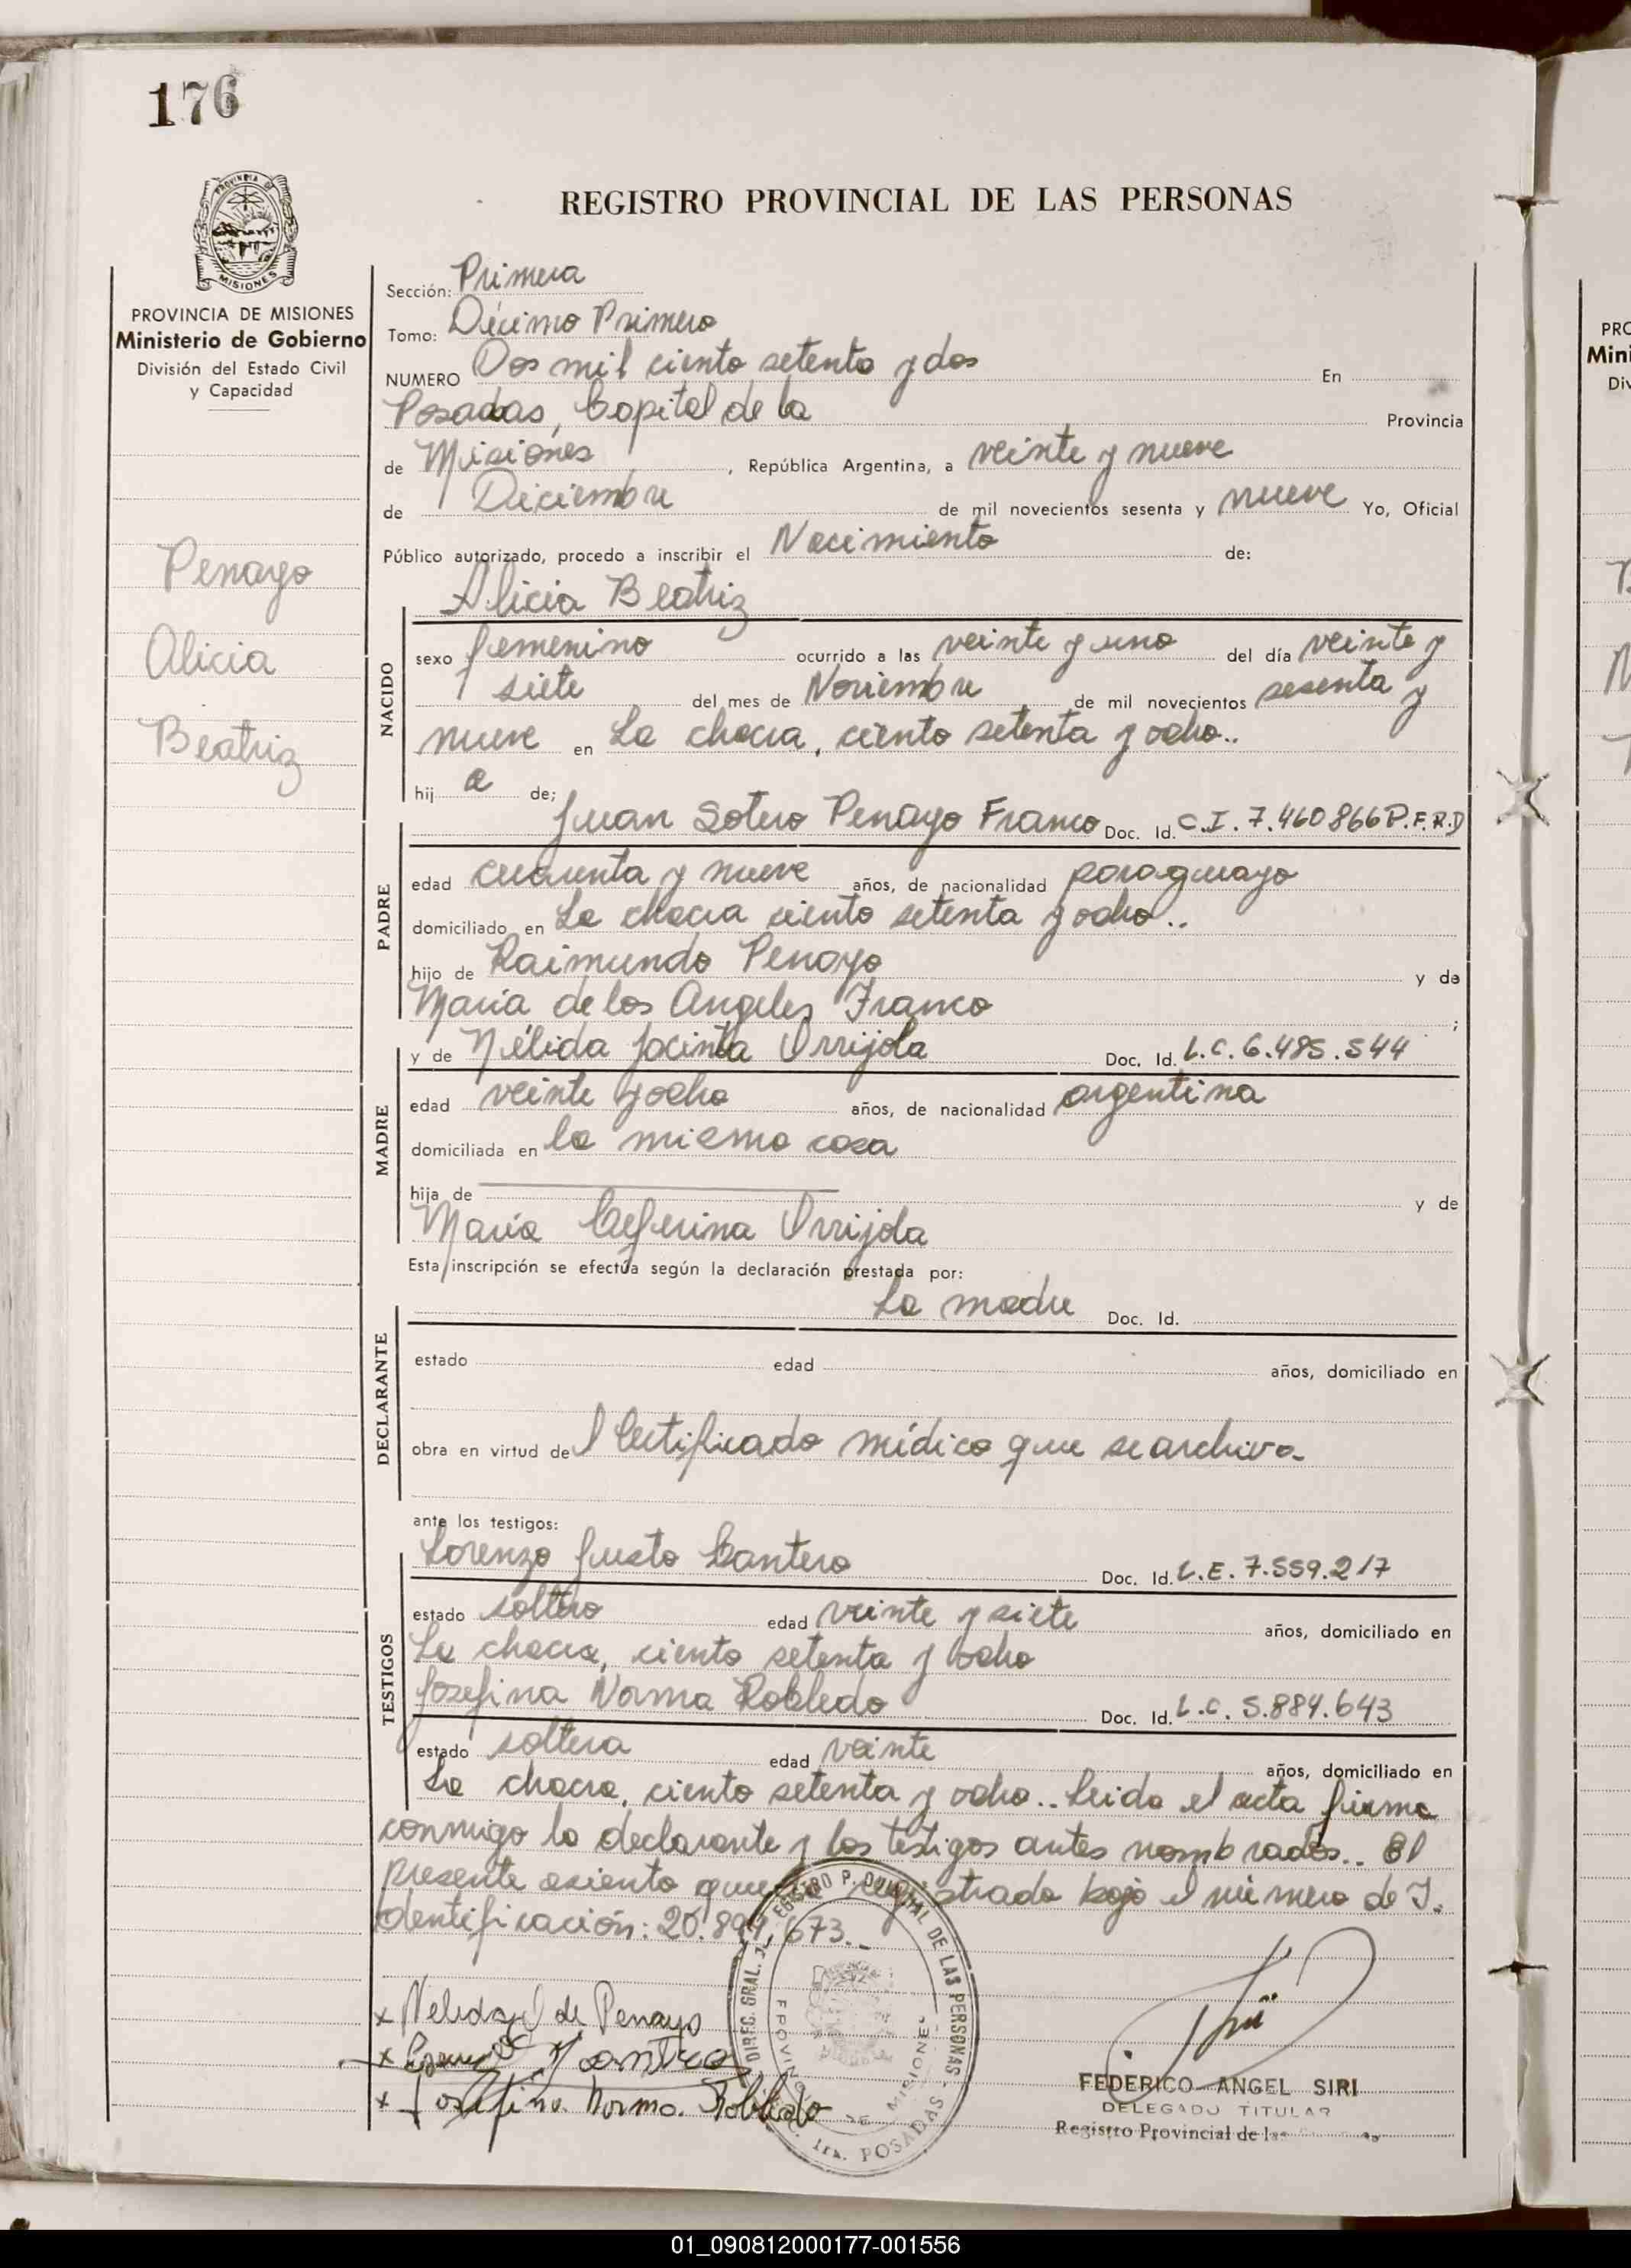 176
PROVINCIA DE
MISIONES
REGISTRO PROVINCIAL DE LAS PERSONAS
PROVINCIA DE MISIONES
Ministerio de Gobierno
División del Estado Civil
y Capacidad
Penayo
Alicia
Beatriz
Sección: Primera
Tomo: Décimo Primero
NUMERO Dos mil ciento setenta y dos En
Posadas, Capital de la Provincia
de Misiones, República Argentina, a veinte y nueve
de Diciembre de mil novecientos sesenta y nueve Yo, Oficial
Público autorizado, procedo a inscribir el Nacimiento de:
Alicia Beatriz
NACIDO
sexo femenino ocurrido a las veinte y una del día veinte y
siete del mes de Noviembre de mil novecientos sesenta y
nueve en La chacra, ciento setenta y ocho..
hij a de;
Juan Sotero Penayo Franco Doc. Id. C.I. 7.460866 P.F.R.D
PADRE
edad cuarenta y nueve años, de nacionalidad paraguayo
domiciliado en La chacra ciento setenta y ocho..
hijo de Raimundo Penayo y de
Maria de los Angeles Franco ;
y de Nélida Jacinta Orrijola Doc. Id. L.C. 6.485.544
MADRE
edad veinte y ocho años, de nacionalidad argentina
domiciliada en la misma casa
hija de y de
María Ceferina Orrijola
Esta inscripción se efectúa según la declaración prestada por:
La madre Doc. Id.
DECLARANTE
estado edad años, domiciliado en
obra en virtud del Certificado médico que se archiva-
ante los testigos:
Lorenzo Justo Cantero Doc. Id. L.E. 7.559.217
TESTIGOS
estado soltero edad veinte y siete años, domiciliado en
La chacra, ciento setenta y ocho
Josefina Norma Robledo Doc. Id. L.C. 5.884.643
estado soltera edad veinte años, domiciliado en
La chacra, ciento setenta y ocho.. Leida el acta firma
conmigo la declarante y los testigos antes nombrados.. El
presente asiento queda registrado bajo el número de I.
dentificación: 20.894.673.-
x Nelida de Penayo
x
x Josefina Norma Robledo
DIREC. GRAL. REGISTRO PROVINCIAL DE LAS PERSONAS
PROVINCIA DE MISIONES
1ra. POSADAS
FEDERICO ANGEL SIRI
DELEGADO TITULAR
Registro Provincial de las
01_090812000177-001556